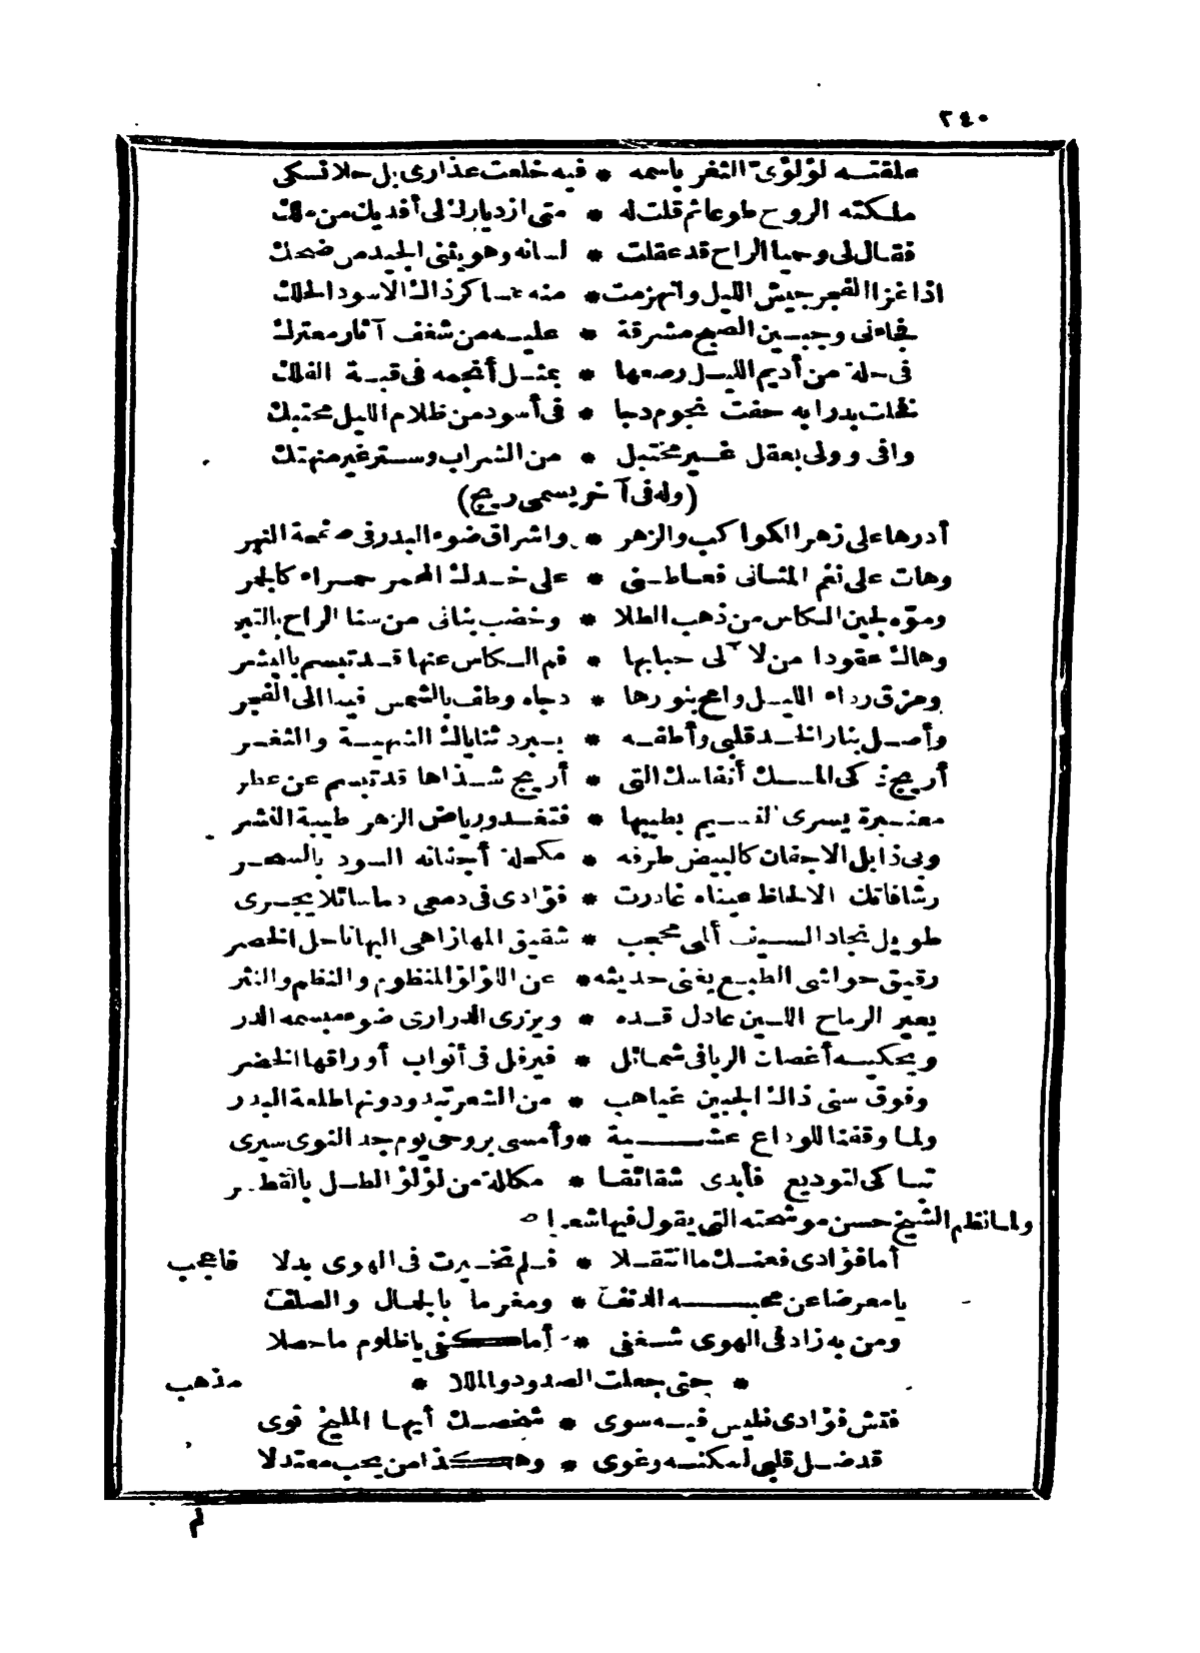 ٢٤٠
علقتـه لؤلؤى الثغر باسمه * فيه خلعت عذارى بل حلا نسكى
ملكته الروح طوعا ثم قلت له * متى ازديارك لى أفديك من ملك
فقال لى وحميا الراح قد عقلت * لسانه وهو يثنى الجيد من ضحك
اذا غزا الفجر جيش الليل وانهزمت * منه عساكر ذاك الاسود الحلك
فجاءنى وجبين الصبح مشرقة * عليه من شغف آثار معترك
فى حلة من أديم الليل رصعها * بمثل أنجمه فى قبة الفلك
فخلت بدرا به حفت نجوم دجا * فى أسود من ظلام الليل محتبك
وافى وولى بعقل غير مختبل * من الشراب وستر غير منهتك
(وله فى آخر يسمى ريج)
أدرها على زهر الكواكب والزهر * واشراق ضوء البدر فى صفحة النهر
وهات على نغم المثانى فعاطنى * على خدك المحمر حمراء كالجمر
وموّه لجين الكاس من ذهب الطلا * وخضب بنانى من سنا الراح بالتبر
وهاك عقودا من لآلى حبابها * فم الكاس عنها قد تبسم بالبشر
ومزق رداء الليل وامح بنورها * دجاه وطف بالشمس فينا الى الفجر
وأصل بنار الخد قلبى وأطفه * ببرد ثناياك الشهية والثغر
أريج ذكى المسك أنفاسك التى * أريج شذاها قد تبسم عن عطر
معنبرة يسرى النسيم بطيبها * فتغدو رياض الزهر طيبة النشر
وبى ذابل الاجفان كالبيض طرفه * مكحلة أجفانه السود بالسحر
رشا فاتك الالحاظ عيناه غادرت * فؤادى فى دمعى دما سائلا يجرى
طويل نجاد السيف ألمى محجب * شقيق المها زاهى البها ناحل الخصر
رقيق حواشى الطبع يغنى حديثه * عن اللؤلؤ المنظوم والنظم والنثر
يعير الرماح اللين عادل قده * ويزرى الدرارى ضوء مبسمه الدر
ويحكيه أغصان الربا فى شمائل * فيرفل فى أثواب أوراقها الخضر
وفوق سنى ذاك الجبين غياهب * من الشعر تبدو دونها طلعة البدر
ولما وقفنا للوداع عشية * وأمسى بروحى يوم جد النوى سيرى
تباكى لتوديع فأبدى شقائقا * مكللة من لؤلؤ الطل بالقطر
ولما نظم الشيخ حسن موشحته التى يقول فيها شعرا
أما فؤادى فعنك ما انتقلا * فلم تخيرت فى الهوى بدلا فاعجب
يا معرضا عن محبه الدنف * ومغرما بالجمال والصلف
ومن به زاد فى الهوى شغفى * أما كفى يا ظلوم ما حصلا
* حتى جعلت الصدود والمللا * مذهب
فتش فؤادى فليس فيه سوى * شخصك أيها المليح ثوى
قد ضل قلبى لمكنه وغوى * وهكذا من يحب معتدلا
لم